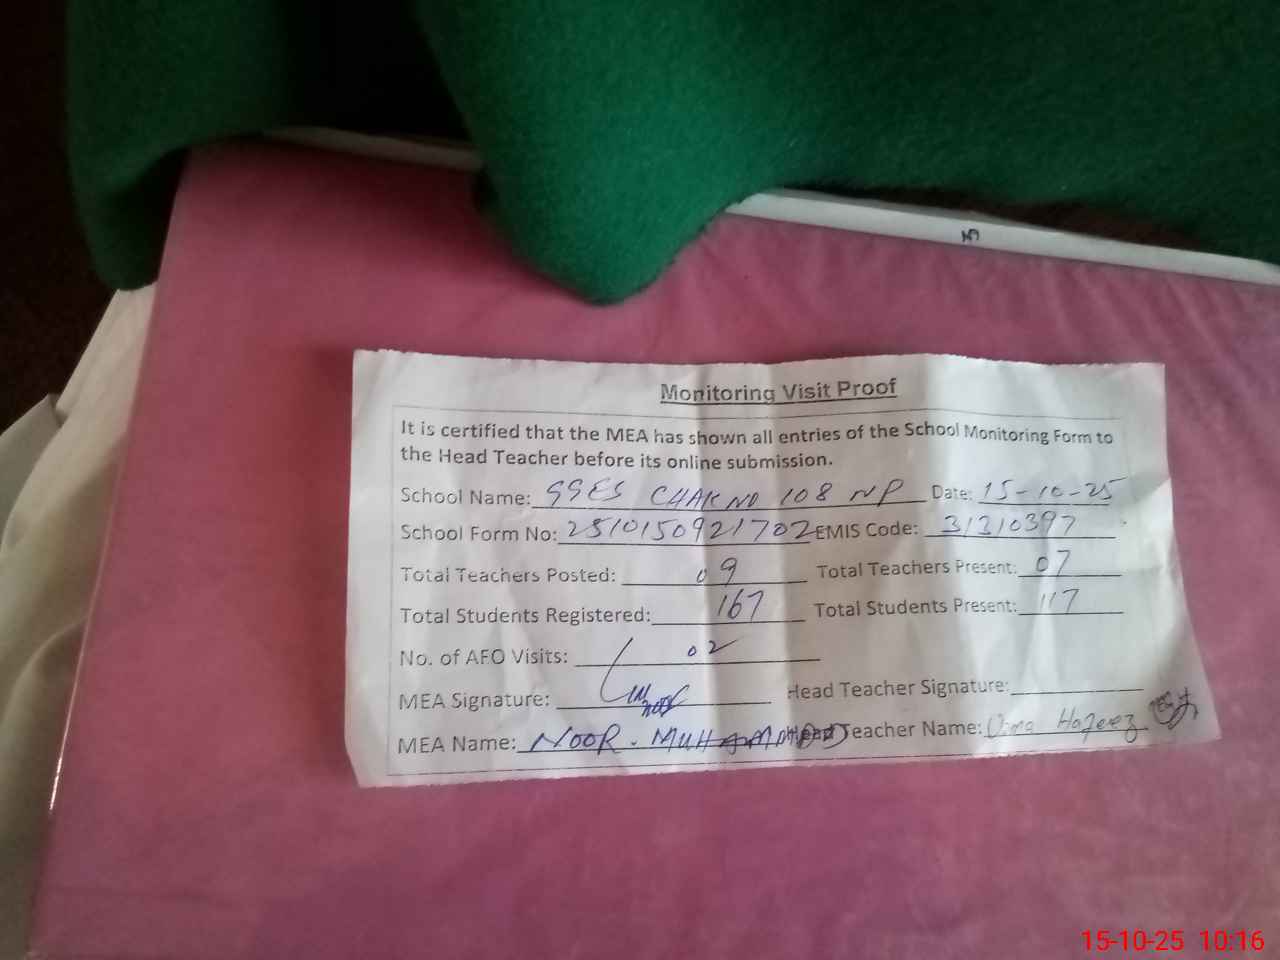 Monitoring Visit Proof
It is certified that the MEA has shown all entries of the School Monitoring Form to
the Head Teacher before its online submission.
School Name: GGES CHAK NO 108 NP Date: 15-10-25
School Form No: 2510150921702 EMIS Code: 31310397
Total Teachers Posted: 09 Total Teachers Present: 07
Total Students Registered: 167 Total Students Present: 117
No. of AEO Visits: 02
MEA Signature: Head Teacher Signature:
MEA Name: NOOR. MUHAMMAD Head Teacher Name: Hafeez
15-10-25 10:16